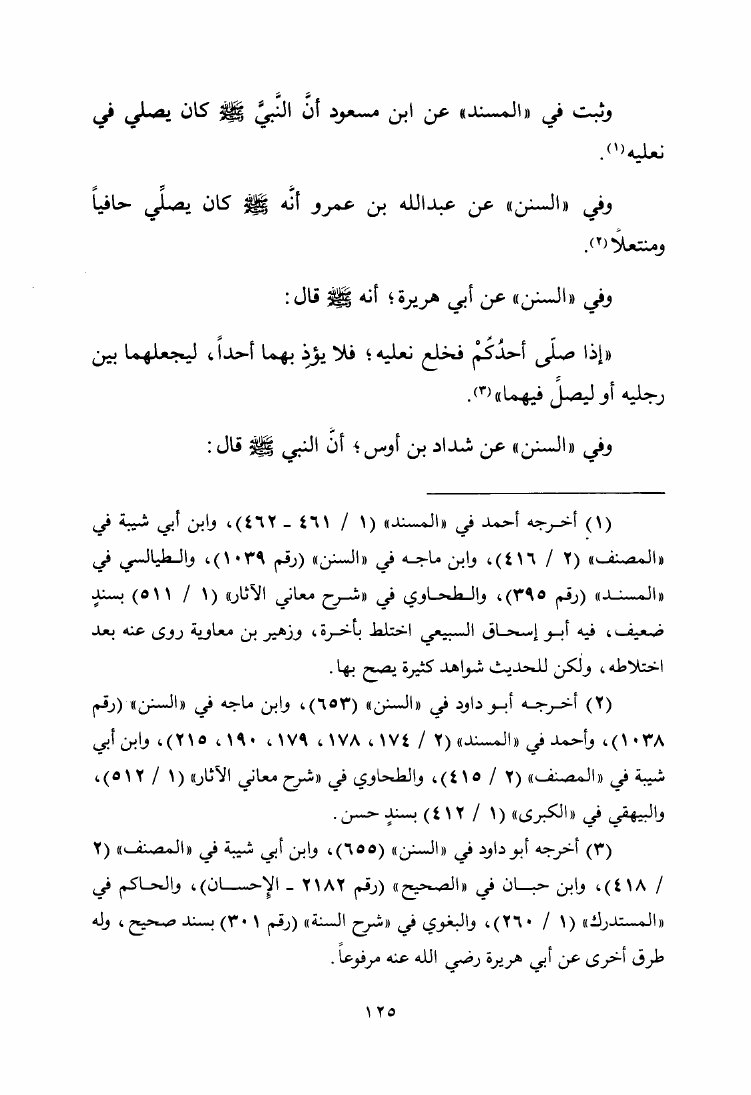 وثبت في «المسند» عن ابن مسعود أنَّ النَّبيَّ ﷺ كان يصلي في
نعليه(١).
وفي «السنن» عن عبدالله بن عمرو أنَّه ﷺ كان يصلِّي حافياً
ومنتعلًا(٢).
وفي «السنن» عن أبي هريرة؛ أنه ﷺ قال:
«إذا صلَّى أحدُكُمْ فخلع نعليه؛ فلا يؤذِ بهما أحداً، ليجعلهما بين
رجليه أو ليصلِّ فيهما»(٣).
وفي «السنن» عن شداد بن أوس؛ أنَّ النبي ﷺ قال:
(١) أخرجه أحمد في «المسند» (١ / ٤٦١ ـ ٤٦٢)، وابن أبي شيبة في
«المصنف» (٢ / ٤١٦)، وابن ماجه في «السنن» (رقم ١٠٣٩)، والطيالسي في
«المسند» (رقم ٣٩٥)، والطحاوي في «شرح معاني الآثار» (١ / ٥١١) بسندٍ
ضعيف، فيه أبو إسحاق السبيعي اختلط بأخرة، وزهير بن معاوية روى عنه بعد
اختلاطه، ولكن للحديث شواهد كثيرة يصح بها.
(٢) أخرجه أبو داود في «السنن» (٦٥٣)، وابن ماجه في «السنن» (رقم
١٠٣٨)، وأحمد في «المسند» (٢ / ١٧٤، ١٧٨، ١٧٩، ١٩٠، ٢١٥)، وابن أبي
شيبة في «المصنف» (٢ / ٤١٥)، والطحاوي في «شرح معاني الآثار» (١ / ٥١٢)،
والبيهقي في «الكبرى» (١ / ٤١٢) بسندٍ حسن.
(٣) أخرجه أبو داود في «السنن» (٦٥٥)، وابن أبي شيبة في «المصنف» (٢
/ ٤١٨)، وابن حبان في «الصحيح» (رقم ٢١٨٢ ـ الإحسان)، والحاكم في
«المستدرك» (١ / ٢٦٠)، والبغوي في «شرح السنة» (رقم ٣٠١) بسند صحيح، وله
طرق أخرى عن أبي هريرة رضي الله عنه مرفوعاً.
١٢٥